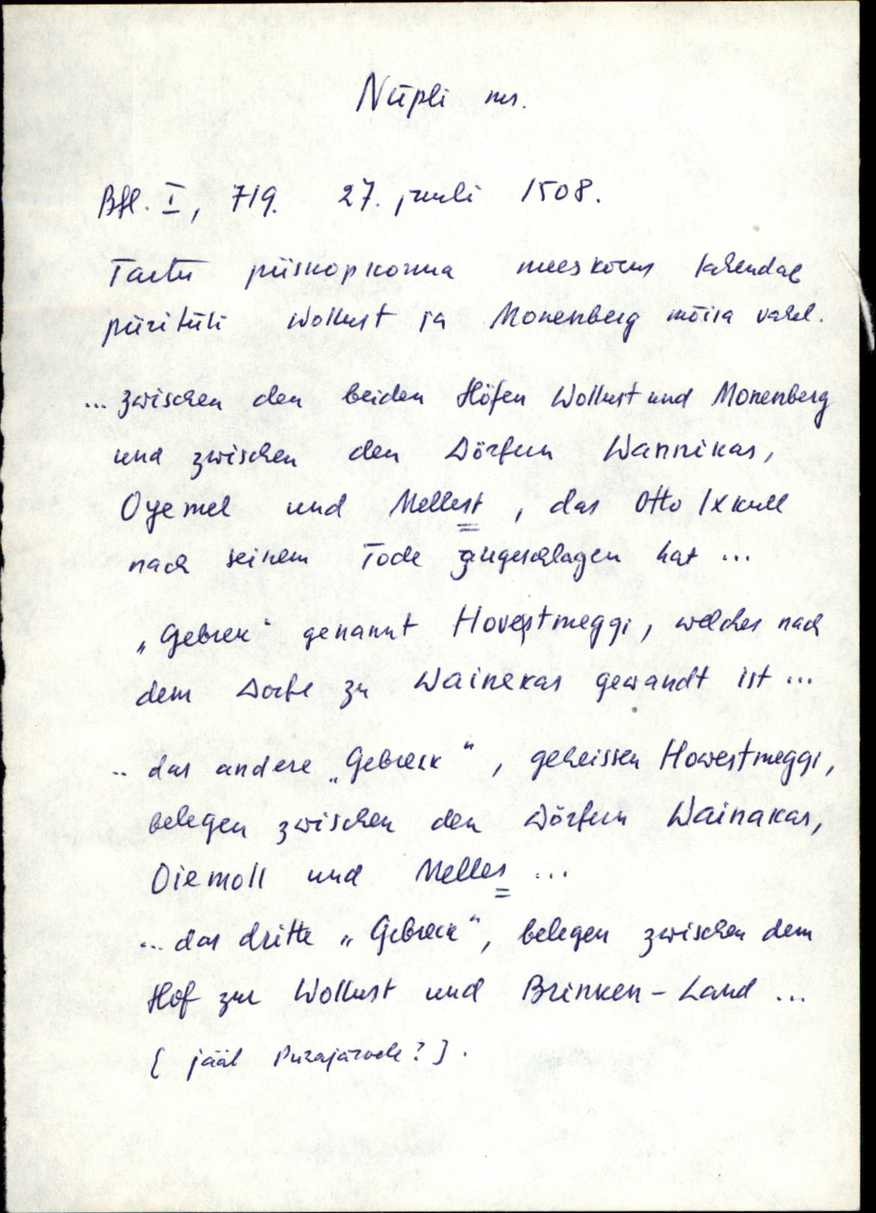 Nüpli ms.
Bfl. I, 719. 27. juuli 1508.
Tartu piiskopkonna meeskohus lahendab
piiritüli Wollust ja Monenberg mõisa vahel.
... zwischen den beiden Höfen Wollust und Monenberg
und zwischen den Dörfern Wannikas,
Oyemel und Mellest, das Otto Ixkull
nach seinem Tode angeschlagen hat ...
„Gebrek“ genannt Hovestmeggi, welches nach
dem Dorfe zu Wainekas gewandt ist ...
.. das andere „Gebreck“, geheissen Howestmeggi,
belegen zwischen den Dörfern Wainakas,
Oiemoll und Melles ...
... das dritte „Gebreck“, belegen zwischen dem
Hof zur Wollust und Brinken-Land ...
[jääb ?].